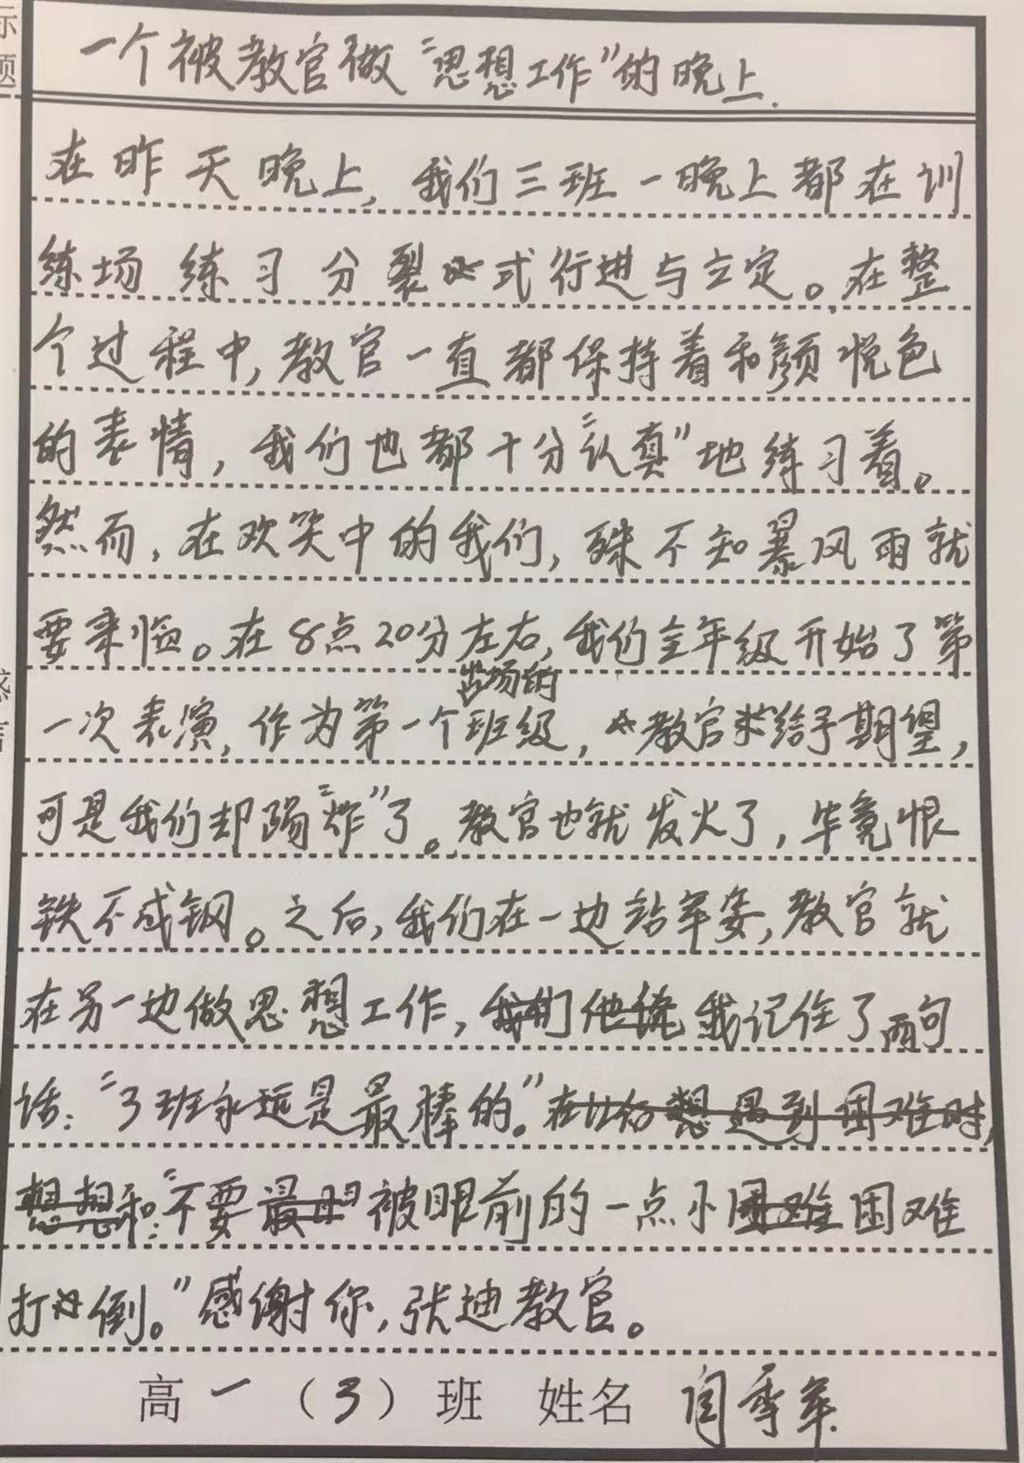 标题
一个被教官做“思想工作”的晚上.
在昨天晚上，我们三班一晚上都在训
练场 练习 分裂式行进与立定。在整
个过程中，教官一直都保持着和颜悦色
的表情，我们也都十分“认真”地练习着。
然而，在欢笑中的我们，殊不知暴风雨就
要来临。在8点20分左右，我们全年级开始了第
一次表演，作为第一个出场的班级，教官给予期望，
可是我们却踢“炸”了。教官也就发火了，毕竟恨
铁不成钢。之后，我们在一边站军姿，教官就
在另一边做思想工作，我们他说我记住了两句
话：“3班永远是最棒的。”在想遇到困难时，
想想和：“不要最被眼前的一点小困难困难
打倒。”感谢你，张迪教官。
感言
高一（3）班 姓名 闫季